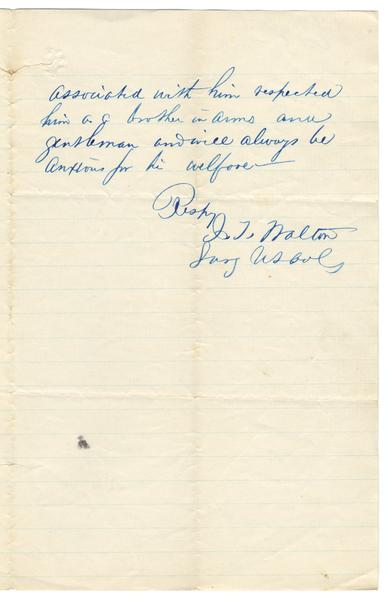 associated with him respected
him as a brother in arms and
gentleman and will always be
anxious for his welfare
Respy
J. T. Walton
Surg U S Vols